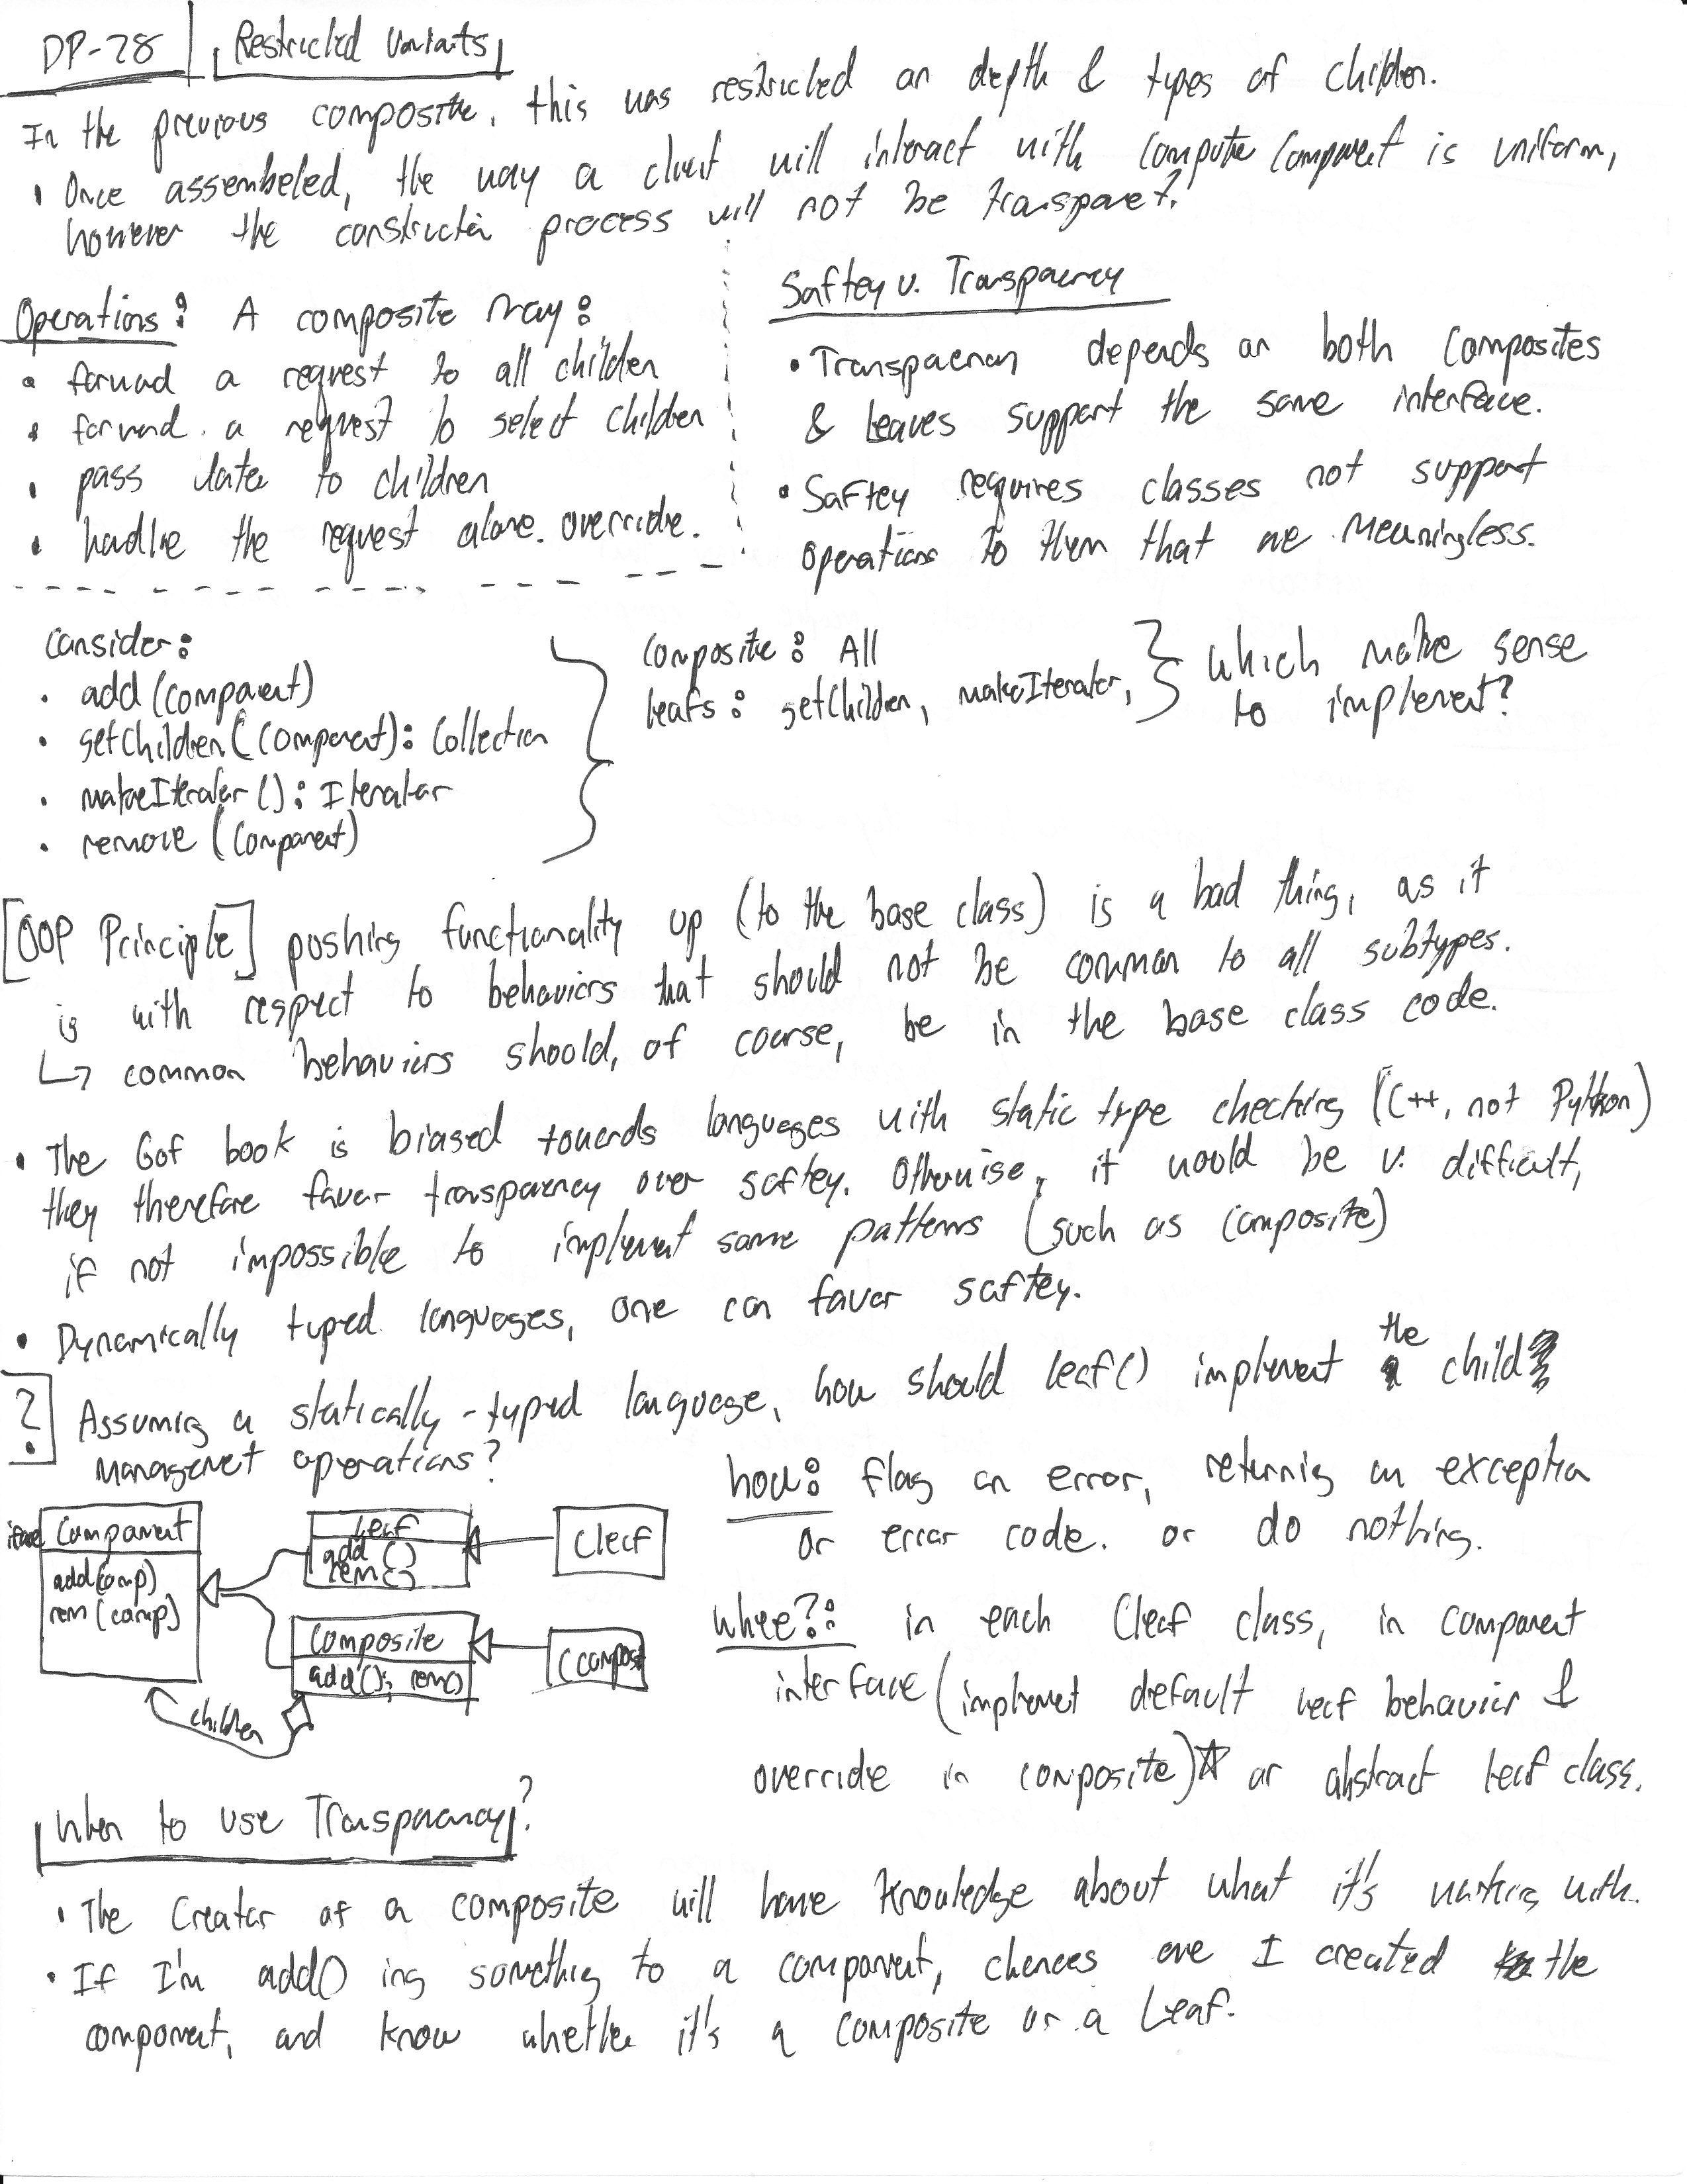 DP-28 | Restricted Variants
In the previous composite, this was restricted on depth & types of children.
• Once assembeled, the way a client will interact with compute component is uniform,
however the construction process will not be transparent.
Operations: A composite may:
• forward a request to all children
• forward a request to select children
• pass data to children
• handle the request alone. override.
Saftey v. Transparency
• Transparency depends on both composites
& leaves support the same interface.
• Saftey requires classes not support
operations to them that are meaningless.
Consider:
• add (component)
• getChildren (component): Collection
• makeIterator (): Iterator
• remove (component)
Composite: All
Leafs: getChildren, makeIterator,
which make sense
to implement?
[OOP Principle] pushing functionality up (to the base class) is a bad thing, as it
is with respect to behaviors that should not be common to all subtypes.
↳ common behaviors should, of course, be in the base class code.
• The GoF book is biased towards languages with static type checking (C++, not Python)
they therefore favor transparency over saftey. Otherwise, it would be v. difficult,
if not impossible to implement some patterns (such as composite)
• Dynamically typed languages, one can favor saftey.
? Assuming a statically-typed language, how should leaf() implement the child
management operations?
how: flag an error, returning an exception
or error code. or do nothing.
where?: in each Cleaf class, in component
interface (implement default leaf behavior &
override in composite)☆ or abstract leaf class.
iface Component
add(comp)
rem(comp)
Leaf
add ()
rem()
Cleaf
Composite
add(); rem()
Ccomposit
children
When to use Transparency?
• The Creator of a composite will have knowledge about what it's working with.
• If I'm add() ing something to a component, chances are I created the
component, and know whether it's a composite or a Leaf.